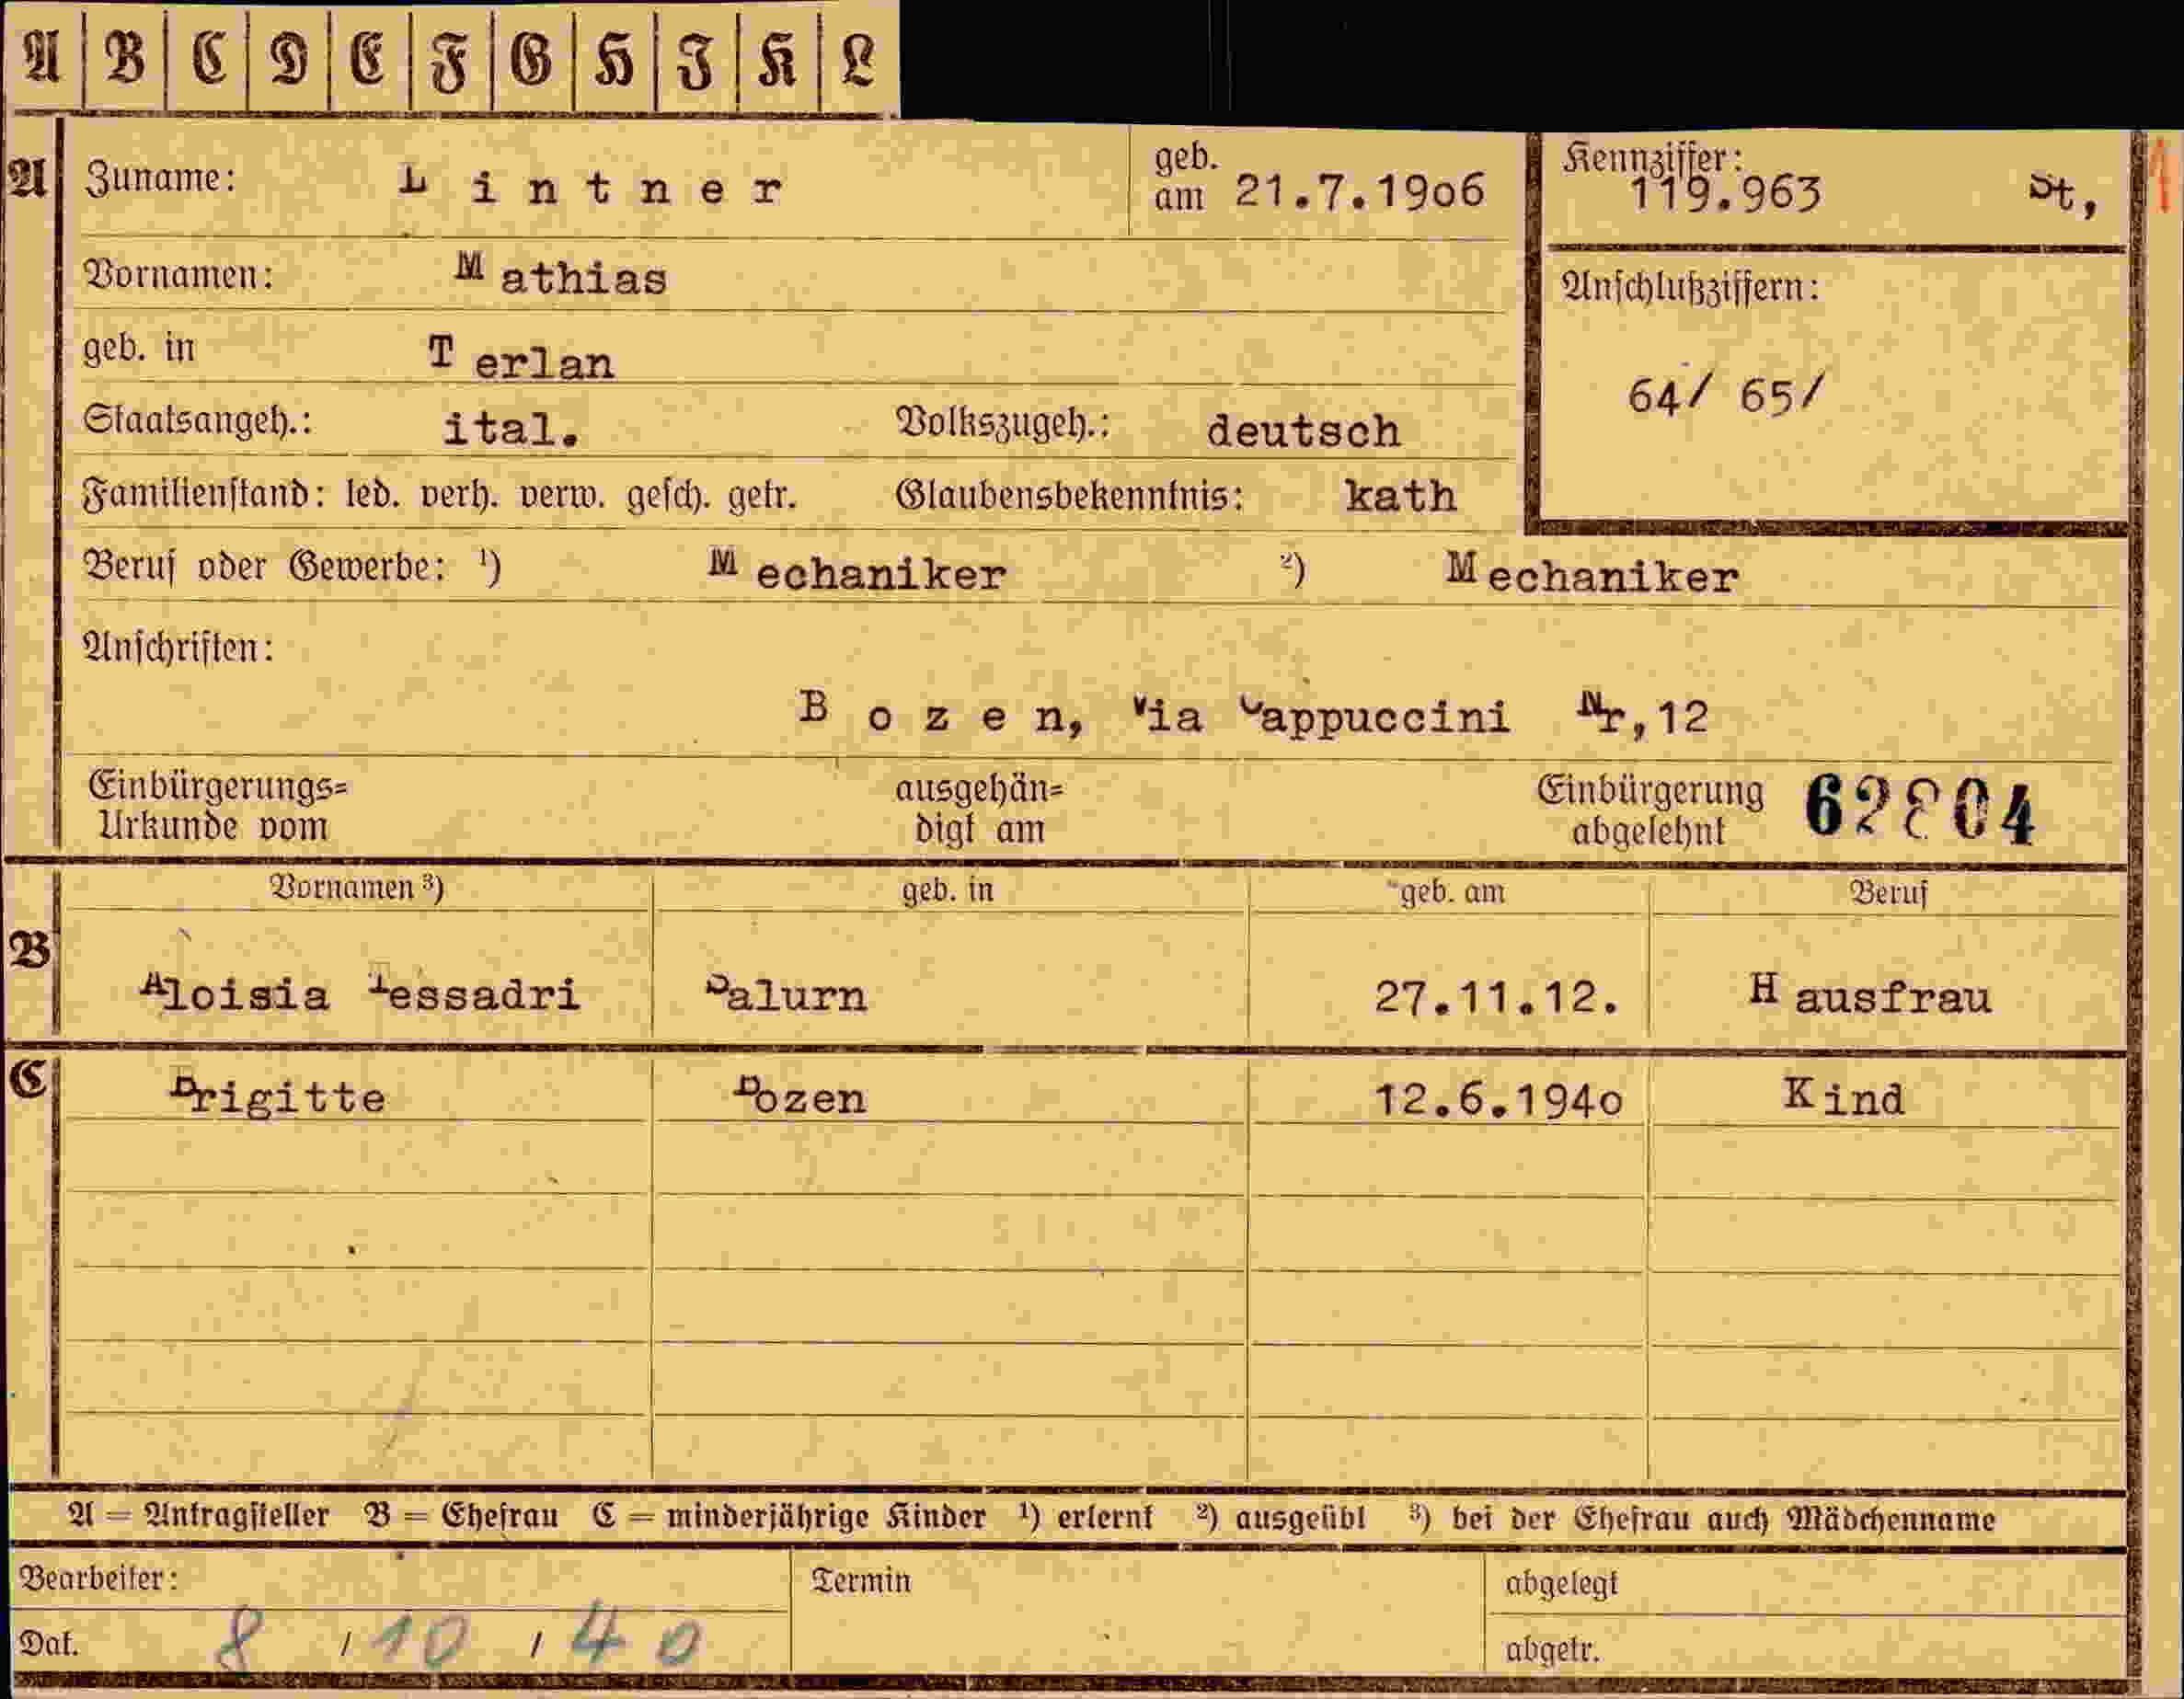 A B C D E F G H I K L
A Zuname: L i n t n e r geb. am 21.7.19o6 Kennziffer: 119.963 St,
Vornamen: Mathias
Anschlußziffern:
geb. in Terlan
64/ 65/
Staatsangeh.: ital. Volkszugeh.: deutsch
Familienstand: led. verh. verw. gesch. getr. Glaubensbekenntnis: kath
Beruf oder Gewerbe: ¹) Mechaniker ²) Mechaniker
Anschriften:
B o z e n, Via Cappuccini Nr,12
Einbürgerungs= ausgehän= Einbürgerung
Urkunde vom digt am abgelehnt
B Vornamen ³) geb. in geb. am Beruf
Aloisia Tessadri Salurn 27.11.12. Hausfrau
C Brigitte Bozen 12.6.194o Kind
A = Antragsteller B = Ehefrau C = minderjährige Kinder ¹) erlernt ²) ausgeübt ³) bei der Ehefrau auch Mädchenname
Bearbeiter: Termin abgelegt
Dat. 8 / 10 / 40 abgetr.